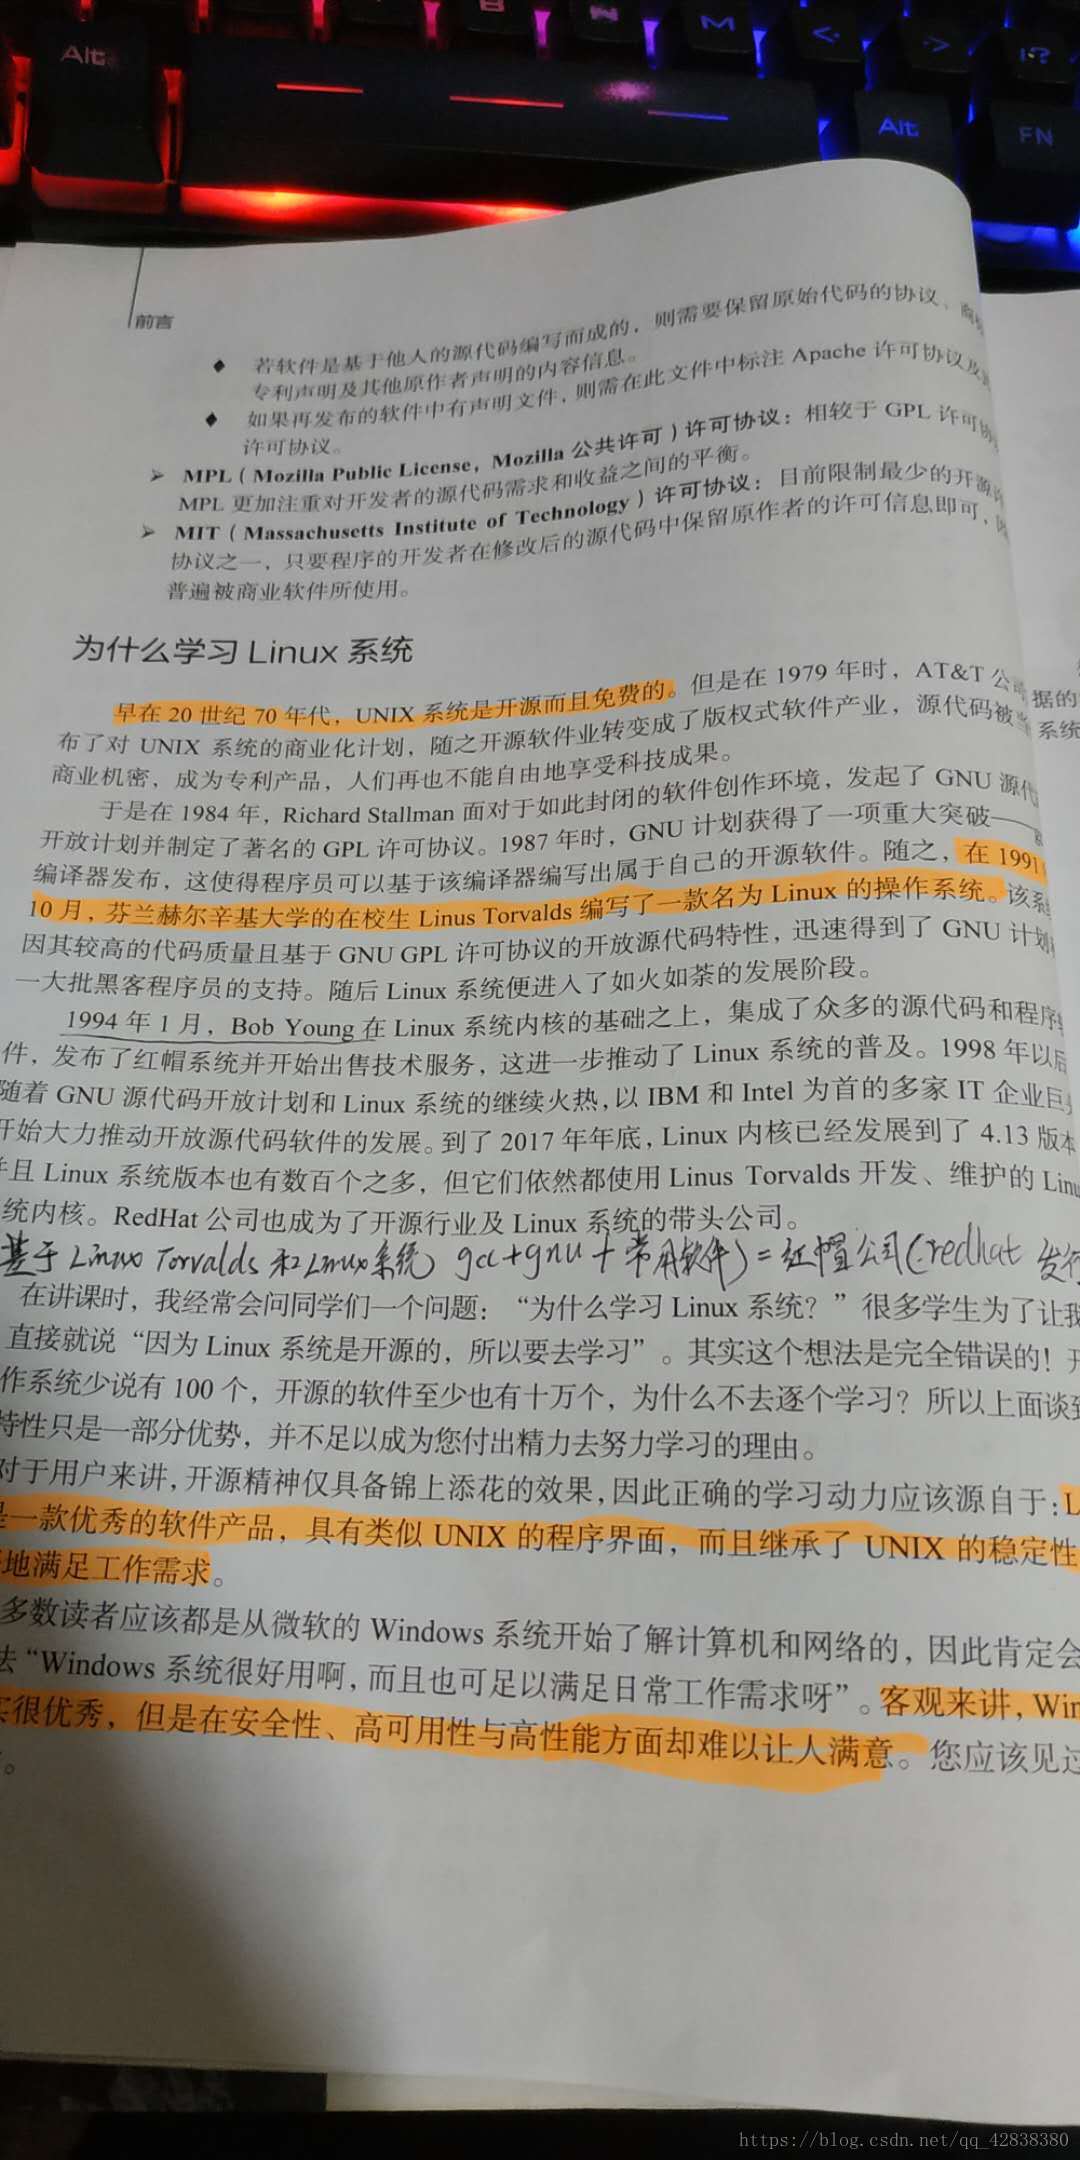 Alt
M
Alt
FN
前言
若软件是基于他人的源代码编写而成的，则需要保留原始代码的协议、商标
专利声明及其他原作者声明的内容信息。
如果再发布的软件中有声明文件，则需在此文件中标注 Apache 许可协议及
许可协议。
MPL（Mozilla Public License，Mozilla 公共许可）许可协议：相较于 GPL 许可协
MPL 更加注重对开发者的源代码需求和收益之间的平衡。
MIT（Massachusetts Institute of Technology）许可协议：目前限制最少的开源许
协议之一，只要程序的开发者在修改后的源代码中保留原作者的许可信息即可，
普遍被商业软件所使用。
为什么学习 Linux 系统
早在 20 世纪 70 年代，UNIX 系统是开源而且免费的。但是在 1979 年时，AT&T 公
布了对 UNIX 系统的商业化计划，随之开源软件业转变成了版权式软件产业，源代码被当
商业机密，成为专利产品，人们再也不能自由地享受科技成果。
于是在 1984 年，Richard Stallman 面对于如此封闭的软件创作环境，发起了 GNU 源代
开放计划并制定了著名的 GPL 许可协议。1987 年时，GNU 计划获得了一项重大突破——
编译器发布，这使得程序员可以基于该编译器编写出属于自己的开源软件。随之，在 1991
10 月，芬兰赫尔辛基大学的在校生 Linus Torvalds 编写了一款名为 Linux 的操作系统。该系
因其较高的代码质量且基于 GNU GPL 许可协议的开放源代码特性，迅速得到了 GNU 计划
一大批黑客程序员的支持。随后 Linux 系统便进入了如火如荼的发展阶段。
1994 年 1 月，Bob Young 在 Linux 系统内核的基础之上，集成了众多的源代码和程序
件，发布了红帽系统并开始出售技术服务，这进一步推动了 Linux 系统的普及。1998 年以后
随着 GNU 源代码开放计划和 Linux 系统的继续火热，以 IBM 和 Intel 为首的多家 IT 企业巨
开始大力推动开放源代码软件的发展。到了 2017 年年底，Linux 内核已经发展到了 4.13 版本
并且 Linux 系统版本也有数百个之多，但它们依然都使用 Linus Torvalds 开发、维护的 Linu
统内核。RedHat 公司也成为了开源行业及 Linux 系统的带头公司。
基于Linux Torvalds 和Linux系统 gcc+gnu+常用软件)=红帽公司(redhat 发行
在讲课时，我经常会问同学们一个问题：“为什么学习 Linux 系统？”很多学生为了让我
直接就说“因为 Linux 系统是开源的，所以要去学习”。其实这个想法是完全错误的！开
作系统少说有 100 个，开源的软件至少也有十万个，为什么不去逐个学习？所以上面谈到
特性只是一部分优势，并不足以成为您付出精力去努力学习的理由。
对于用户来讲，开源精神仅具备锦上添花的效果，因此正确的学习动力应该源自于：L
是一款优秀的软件产品，具有类似 UNIX 的程序界面，而且继承了 UNIX 的稳定性
地满足工作需求。
多数读者应该都是从微软的 Windows 系统开始了解计算机和网络的，因此肯定会
法“Windows 系统很好用啊，而且也可足以满足日常工作需求呀”。客观来讲，Win
实很优秀，但是在安全性、高可用性与高性能方面却难以让人满意。您应该见过
。
据的
系统
https://blog.csdn.net/qq_42838380